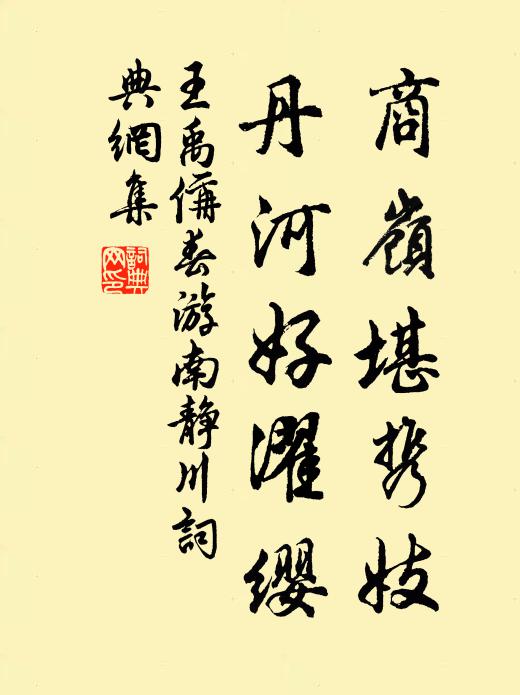 商嶺堪携妓
丹河好濯纓
王禹偁春游南静川詞
典網集
詞典
网印